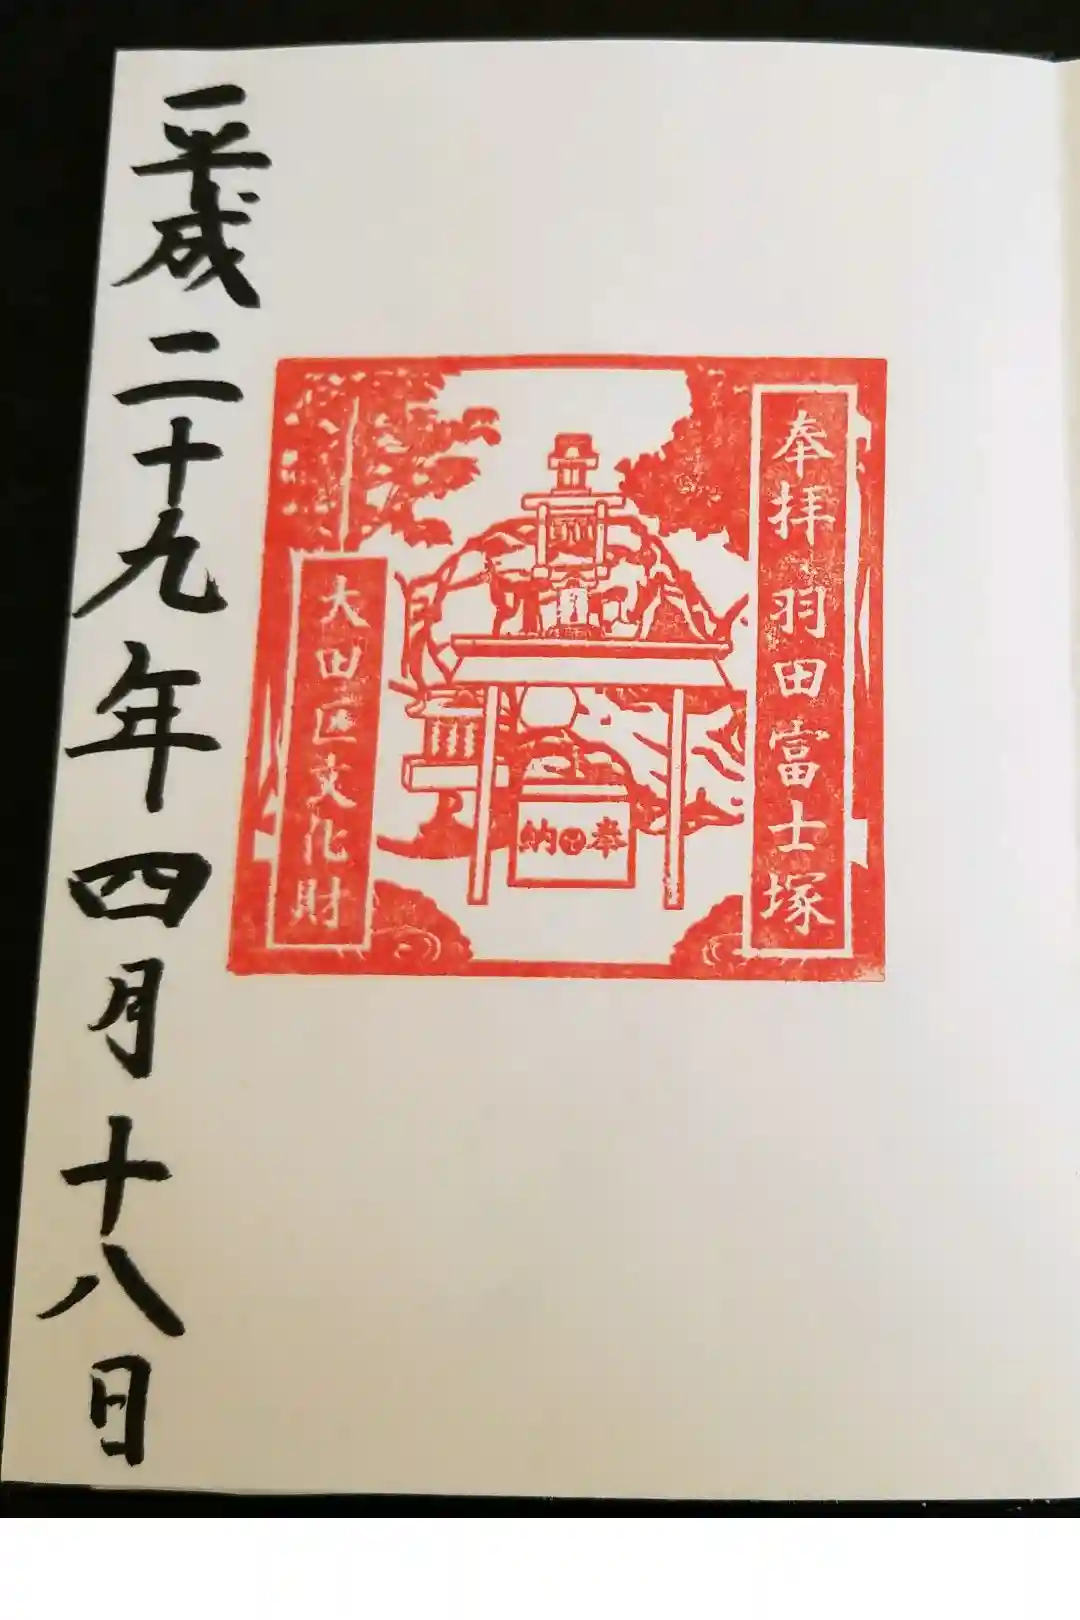 奉拝羽田富士塚
奉納
大田区文化財
平成二十九年四月十八日